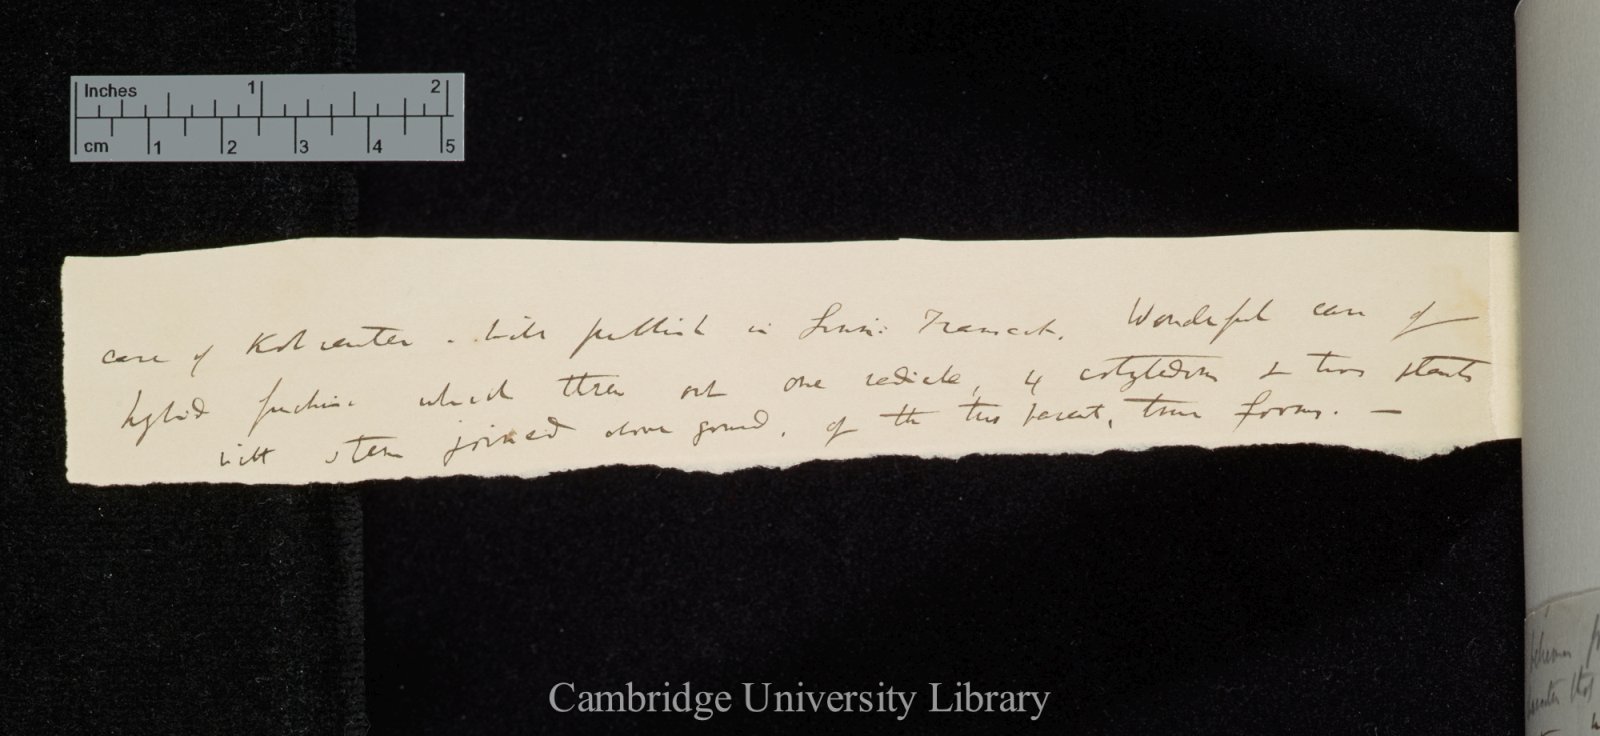 Inches 1 2
cm 1 2 3 4 5
case of Kohlreuter. will publish in Linn: Transact. Wonderful case of
hybrid fuchsia which threw out one radicle, 4 cotyledons & two plants
with stem joined above ground, of the two parent, true forms. —
Cambridge University Library